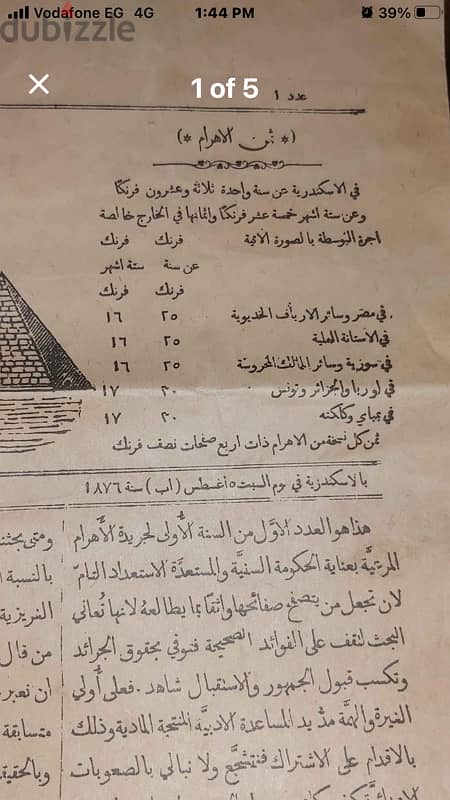 Vodafone EG 4G 1:44 PM 39%
dubizzle
1 of 5
عدد ١
(* ثمن الاهرام *)
في الاسكندرية عن سنة واحدة ثلاثة وعشرون فرنكًا
وعن ستة اشهر خمسة عشر فرنكًا واثمانها في الخارج خالصة
اجرة البوسطة بالصورة الاتية فرنك فرنك
عن سنة ستة اشهر
فرنك فرنك
في مصر وسائر الارياف الخديوية ٢٥ ١٦
في الاستانة العلية ٢٥ ١٦
في سورية وسائر الممالك المحروسة ٢٥ ١٦
في اوربا والجزائر وتونس ٣٠ ١٧
في بمباي وكلكته ٣٠ ١٧
ثمن كل نسخة من الاهرام ذات اربع صفحات نصف فرنك
بالاسكندرية في يوم السبت ٥ اغسطس (اب) سنة ١٨٧٦
هذا هو العدد الاوّل من السنة الأولى لجريدة الأهرام
المرتبَّة بعناية الحكومة السنيَّة والمستعدَّة الاستعداد التامّ
لان تجعل من يتصفح صفائحها واثقًا بما يطالعهُ لانها تُعاني
البحث لتقف على الفوائد الصحيحة فتوفي بحقوق الجرائد
وتكسب قبول الجمهور والاستقبال شاهد. فعلى أُولي
الغيرة والهمَّة مدّ يد المساعدة الادبيَّة المنتجة المادية وذلك
بالاقدام على الاشتراك فنتشجَّع ولا نبالي بالصعوبات
ومتى بحثنا
بالنسبة
الغريزية
من قال
ان نعبر
متسابقة
وبالحقيقة